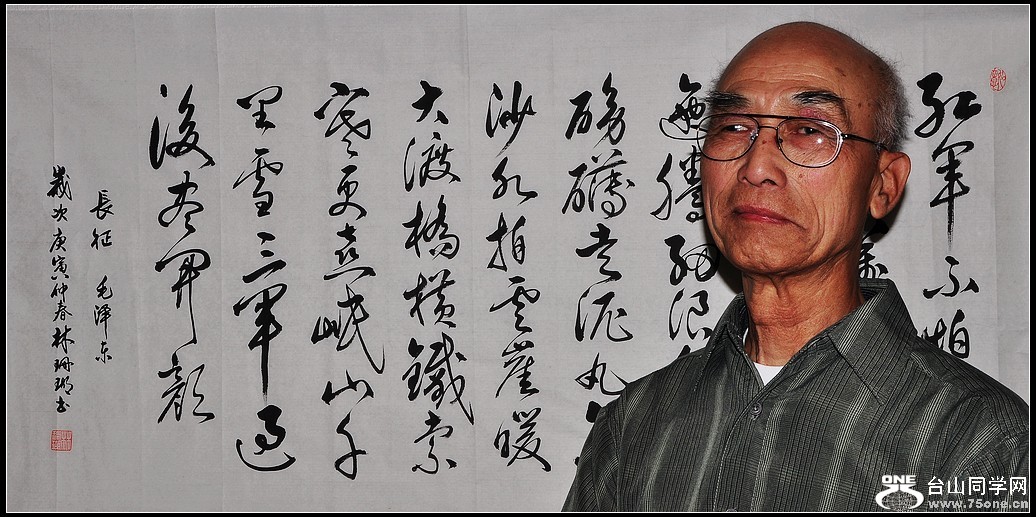 紅軍不怕
邐騰細浪
磅礴走泥丸
沙水拍雲崖暖
大渡橋橫鐵索
寒更喜岷山千
里雪三軍過
後盡開顏
長征 毛澤东
歲次庚寅仲春林珊瑚书
ONE
台山同学网
www.75one.cn